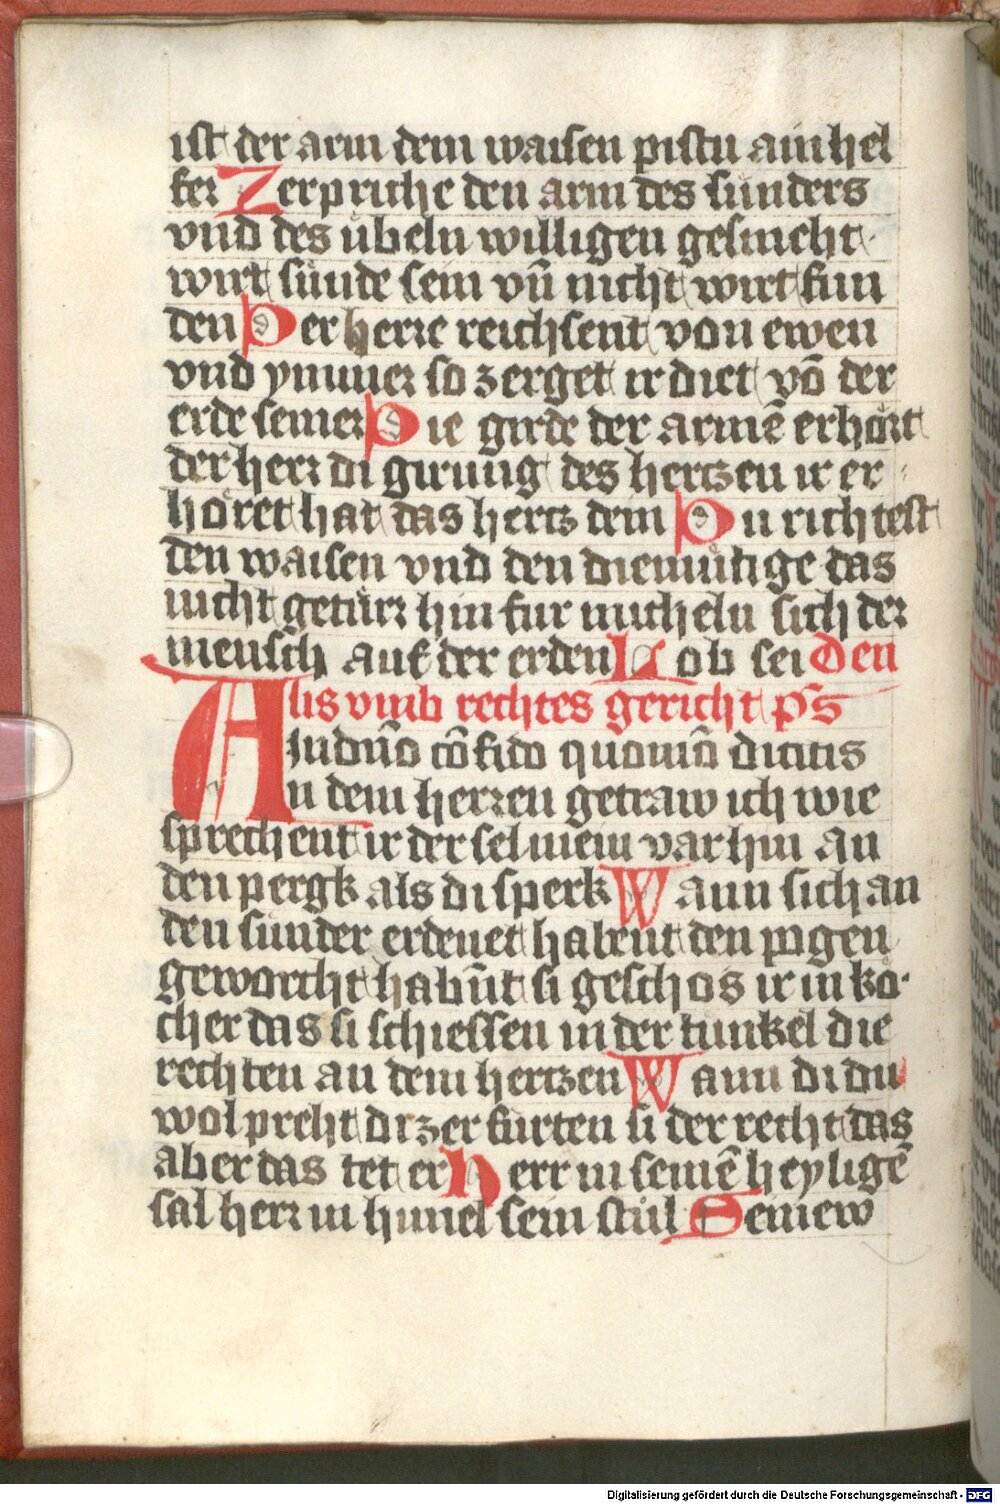 ist der arm dem waisen pistu ain hel
fer Zerpriche den arm des sünders
vnd des übeln willigen gesucht
wirt sünde sein vn̄ nicht wirt fun
den Der herre reichsent von ewen
vnd ymmer so zerget ir diet vō der
erde seiner Die girde der armē erhört
der herr di girung des hertzen ir er
höret hat das hertz dem Du richtest
den waisen vnd den diemütige das
nicht getürr hin fur micheln sich der
mensch auf der erden Lob sei Den
Alis vmb rechtes gericht ps
In dn̄o cōfido quomō dicitis
An dem herren getraw ich wie
sprechent ir der sel meiu var hin an
den pergk als di sperk Wann sich an
den sunder erdenet habent den pogen
geworcht habn̄t si geschos ir in kö
cher das si schiessen in der tunkel die
rechten an dem hertzen Wann di du
wolpreht dizerfurten si der recht das
aber das tet er Herr in seinē heyligē
sal herr in himel sein stül Seinew
Digitalisierung gefördert durch die Deutsche Forschungsgemeinschaft - DFG